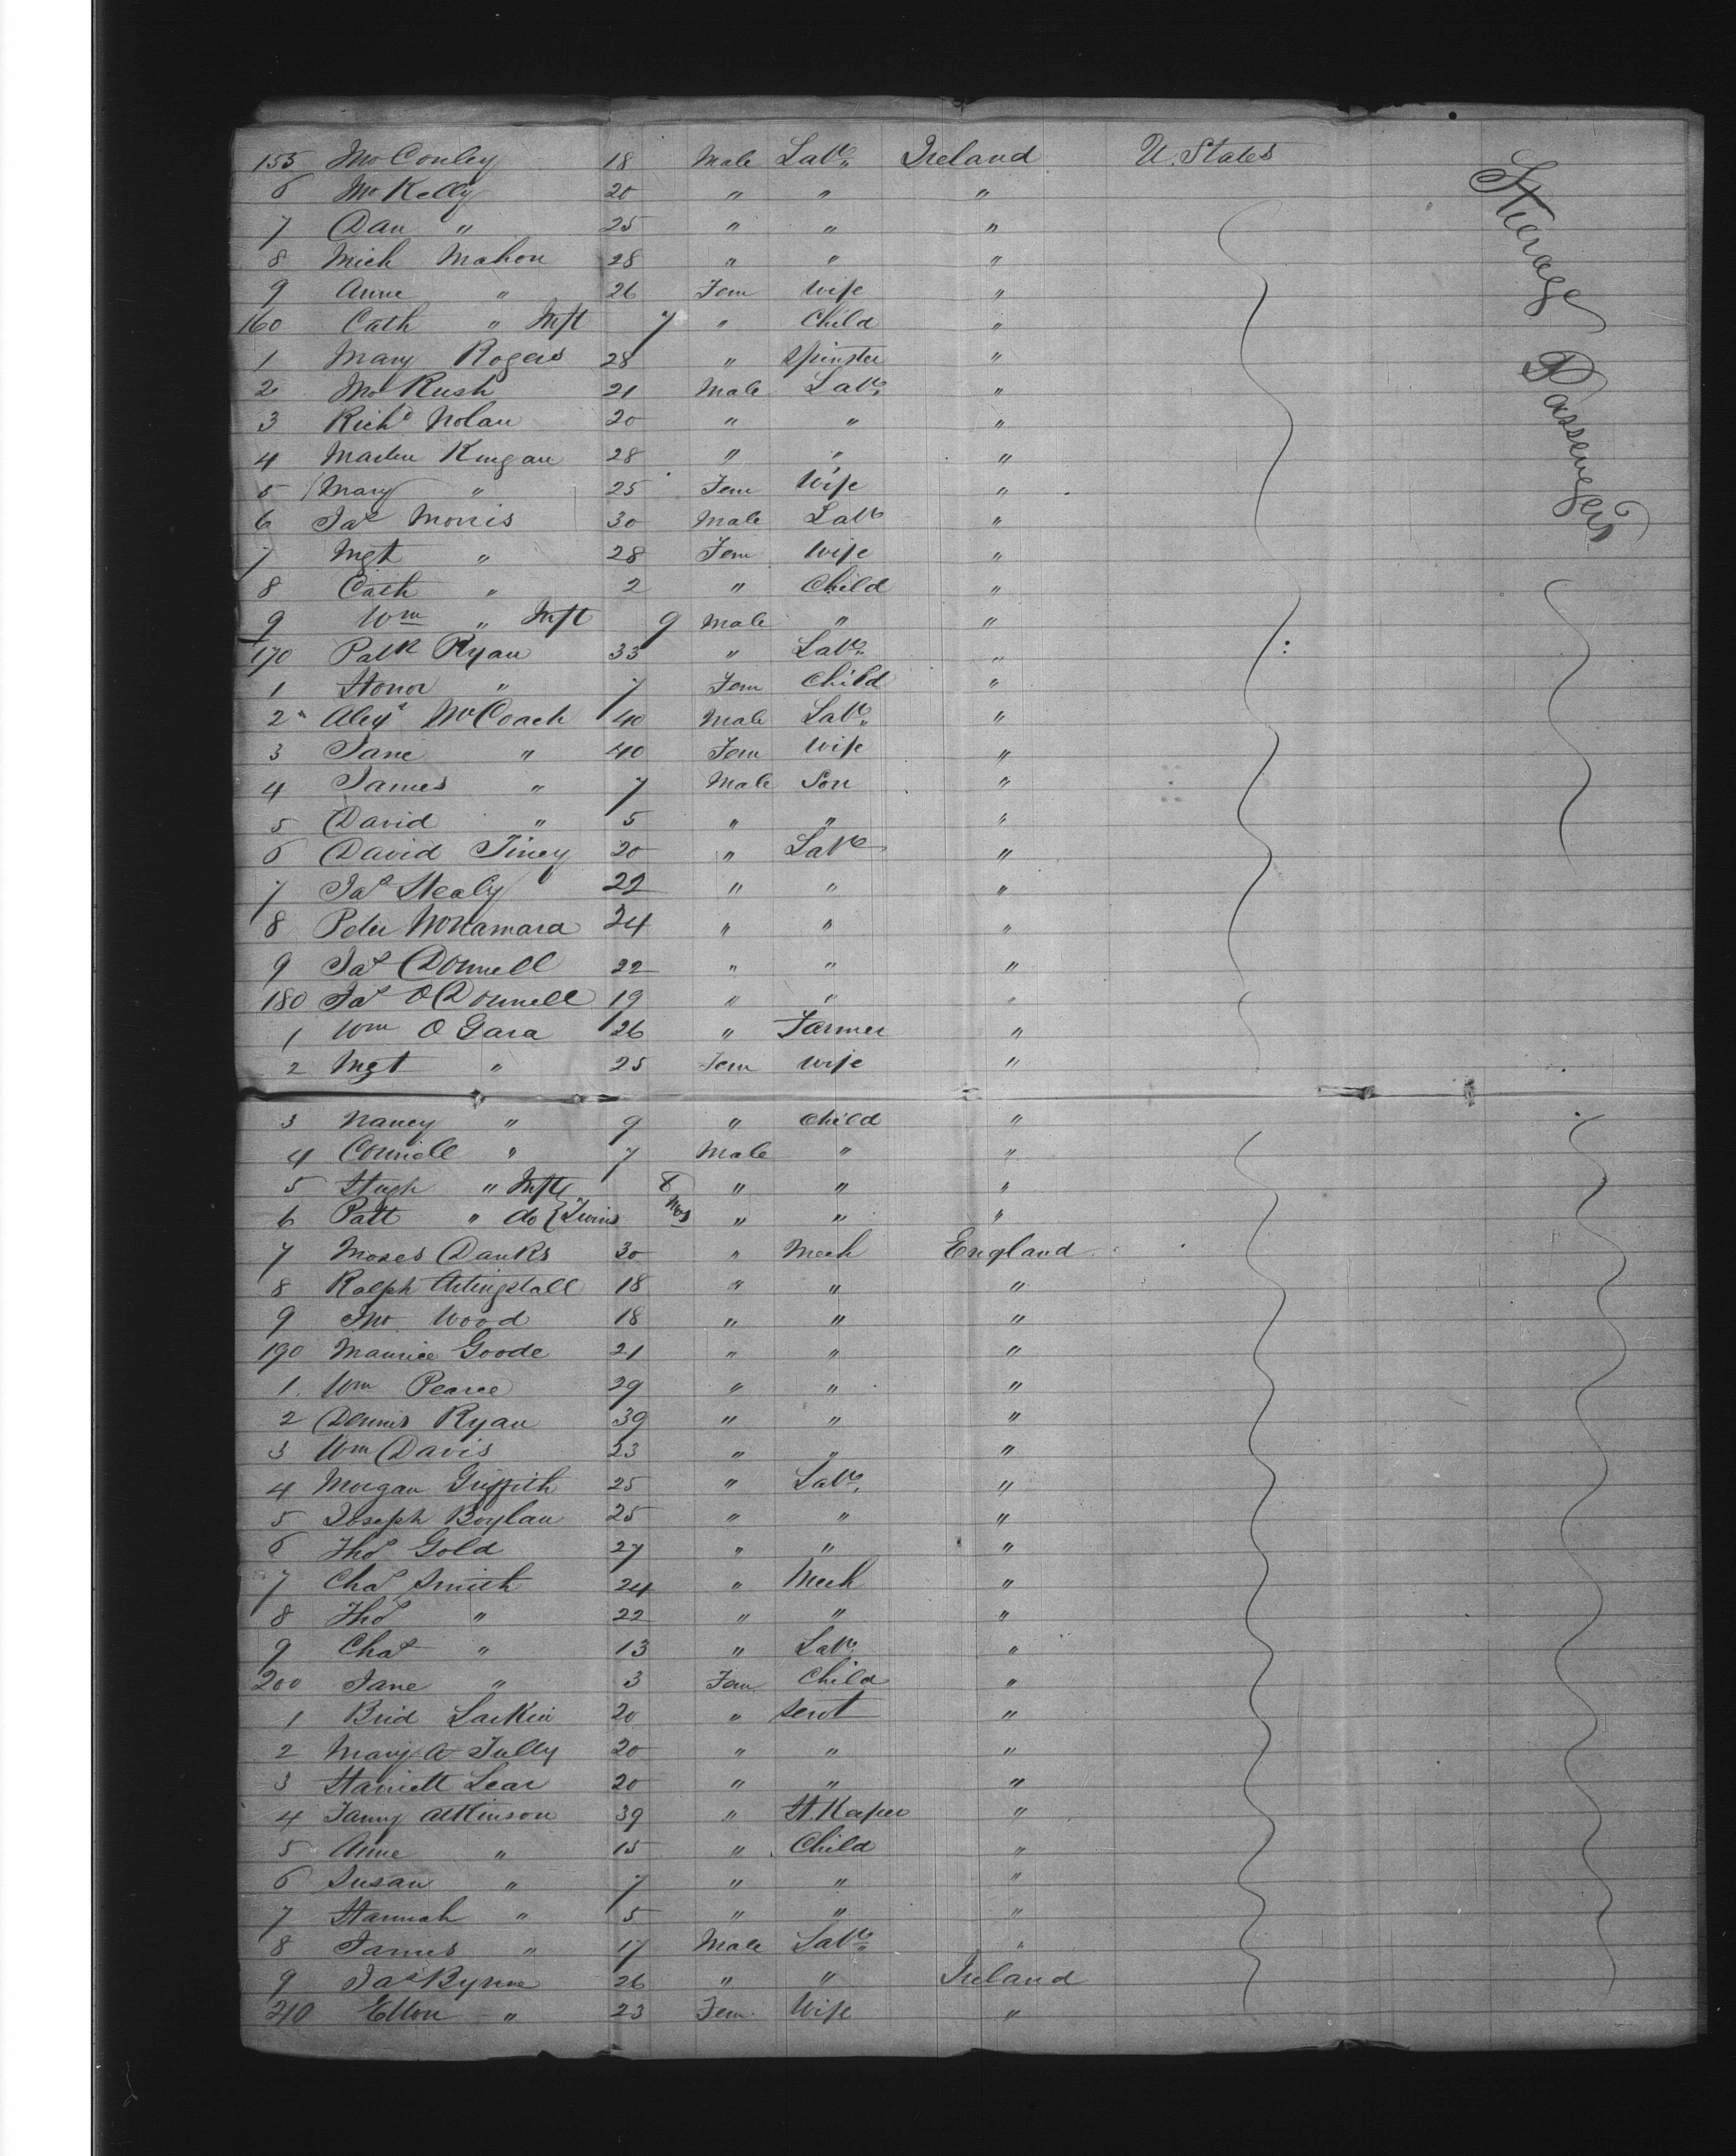 155 Jno Conley 18 Male Labr Ireland U. States
6 Jno Kelly 20 " " "
7 Dan " 25 " " "
8 Mich Mahon 28 " " "
9 Anne " 26 Fem Wife "
160 Cath " Inft 7 " Child "
1 Mary Rogers 28 " Spinster "
2 Jno Rush 21 Male Labr "
3 Richd Nolan 20 " " "
4 Martin Kingan 28 " " "
5 Mary " 25 Fem Wife "
6 Jas Morris 30 Male Labr "
7 Mgt " 28 Fem Wife "
8 Cath " 2 " Child "
9 Wm " Inft 9 Male " "
170 Patk Ryan 33 " Labr "
1 Honor " 7 Fem Child "
2 Alexr McCoach 40 Male Labr "
3 Jane " 40 Fem Wife "
4 James " 7 Male Son "
5 David " 5 " " "
6 David Finey 20 " Labr "
7 Jas Healy 22 " " "
8 Peter McNamara 24 " " "
9 Jas Donnell 22 " " "
180 Jas O Donnell 19 " " "
1 Wm O Gara 26 " Farmer "
2 Mgt " 25 Fem Wife "
3 Nancy " 9 " Child "
4 Connell " 7 Male " "
5 Hugh " Inft 8 " " "
6 Patt " do { Twins Mos " " "
7 Moses Danks 30 " Mech England
8 Ralph Artingstall 18 " " "
9 Jno Wood 18 " " "
190 Maurice Goode 21 " " "
1 Wm Pearce 29 " " "
2 Dennis Ryan 39 " " "
3 Wm Davis 23 " " "
4 Morgan Griffith 25 " Labr "
5 Joseph Boylan 25 " " "
6 Thos Gold 27 " " "
7 Chas Smith 24 " Mech "
8 Thos " 22 " " "
9 Chas " 13 " Labr "
200 Jane " 3 Fem Child "
1 Brid Larkin 20 " Servt "
2 Mary A Tully 20 " " "
3 Harriett Lear 20 " " "
4 Fanny Atkinson 39 " H. Keeper "
5 Anne " 15 " Child "
6 Susan " 7 " " "
7 Hannah " 5 " " "
8 James " 17 Male Labr "
9 Jas Byrne 26 " " Ireland
210 Ellen " 23 Fem Wife "
Steerage Passengers